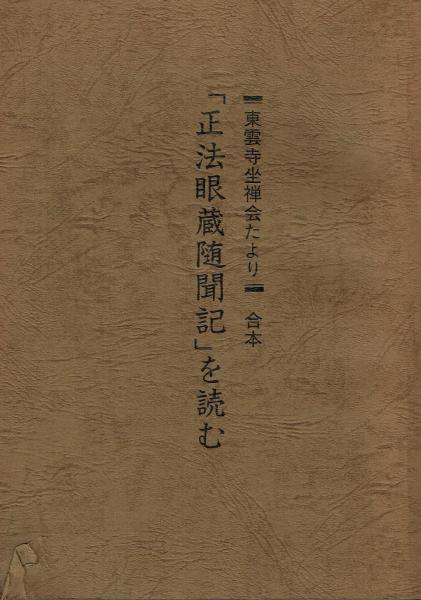 東雲寺坐禅会たより 合本
「正法眼蔵随聞記」を読む